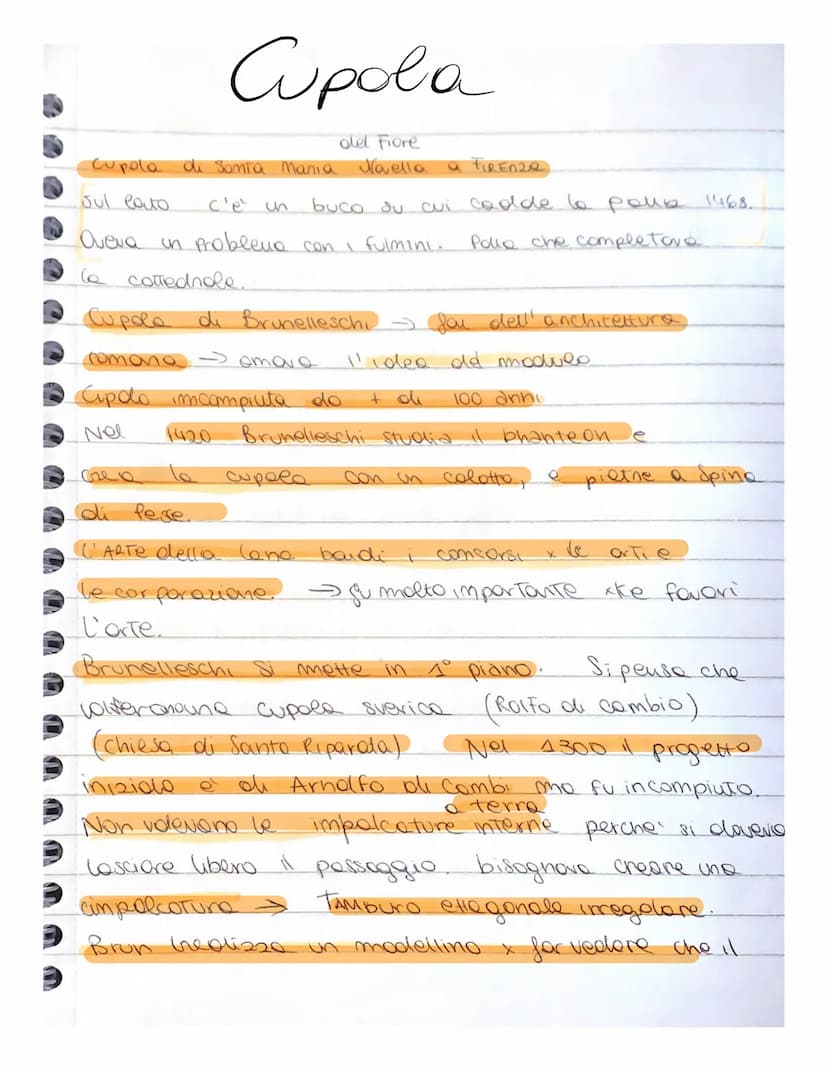 Cupola
del Fiore
Cupola di Santa Maria Novella a FIRENZE
Sul lato c'è un buco su cui cadde la palla 1468.
Aveva un problema con i fulmini. Palla che completava
la cattedrale.
Cupola di Brunelleschi → fan dell'architettura
romana → amava l'idea del modulo
Cupola incompiuta da + di 100 anni
Nel 1420 Brunelleschi studia il phanteon e
crea la cupola con un calotta, e pietre a spina
di pesce.
L'ARTE della lana bandì i concorsi x le arti e
le corporazione. → fu molto importante xke favorì
l'arte.
Brunelleschi si mette in 1° piano. Si pensa che
una cupola sverica (Rolfo di cambio)
(chiesa di Santa Riparata) Nel 1300 il progetto
iniziale è di Arnolfo di Combi ma fu incompiuto.
a terra
Non volevano le impalcature interne perché si doveva
lasciare libero il passaggio. bisognava creare una
impalcatura → TAMBURO ettagonale irregolare.
Brun realizza un modellino x far vedere che il